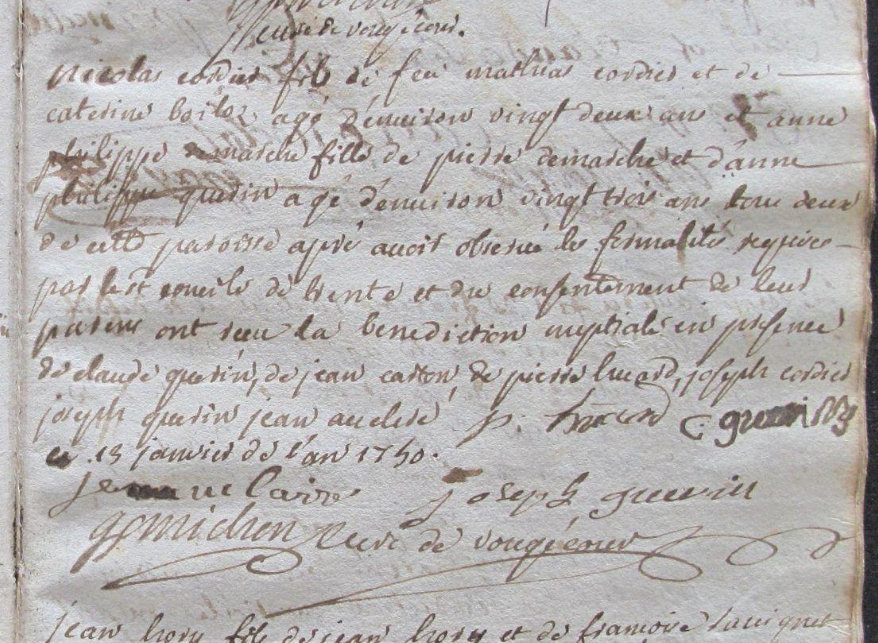 curé de vougécour.
nicolas cordier fils de feu mathias cordier et de
caterine boiloz agé d'enuiron vingt deux ans et anne
philippe demarche fille de pierre demarche et d'anne
philippe guerin agé d'enuiron vingt trois ans tous deux
de cette paroisse apré auoir obserué les formalités requises
par le st concile de trente et du consentement de leur
parens ont receu la benediction nuptiale en presence
de claude guerin, de jean catton, de pierre hucard, joseph cordier
joseph guerin jean auclere p. c. guerin
ce 13 janvier de l'an 1750.
joseph guerin
curé de vougécour
jean hory fils de jean hory et de françoise